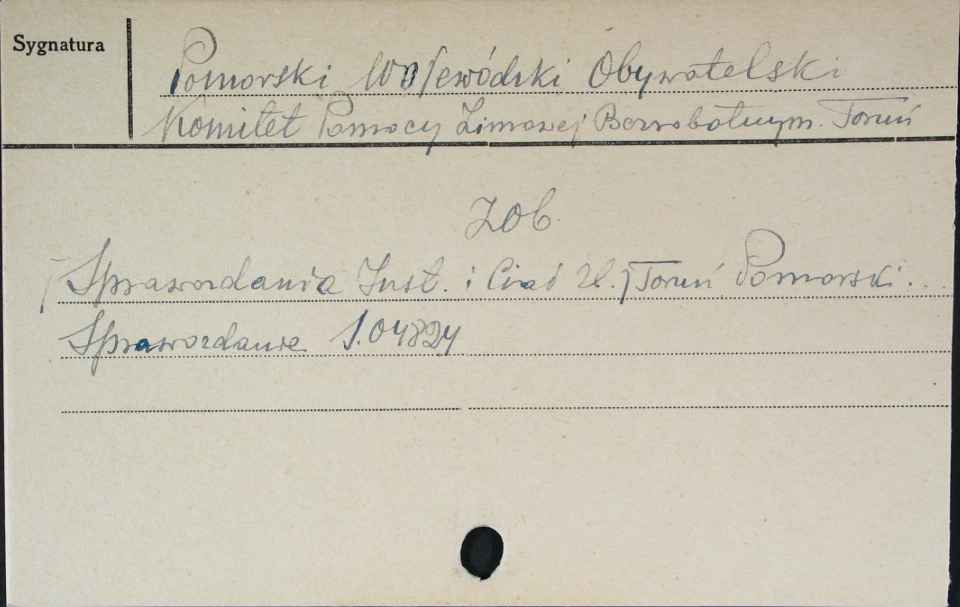 Sygnatura
Pomorski Wojewódzki Obywatelski
Komitet Pomocy Zimowej Bezrobotnym. Toruń
zob.
[Sprawozdania Inst. i Ciał Ul.] Toruń Pomorski...
Sprawozdanie 1.04824